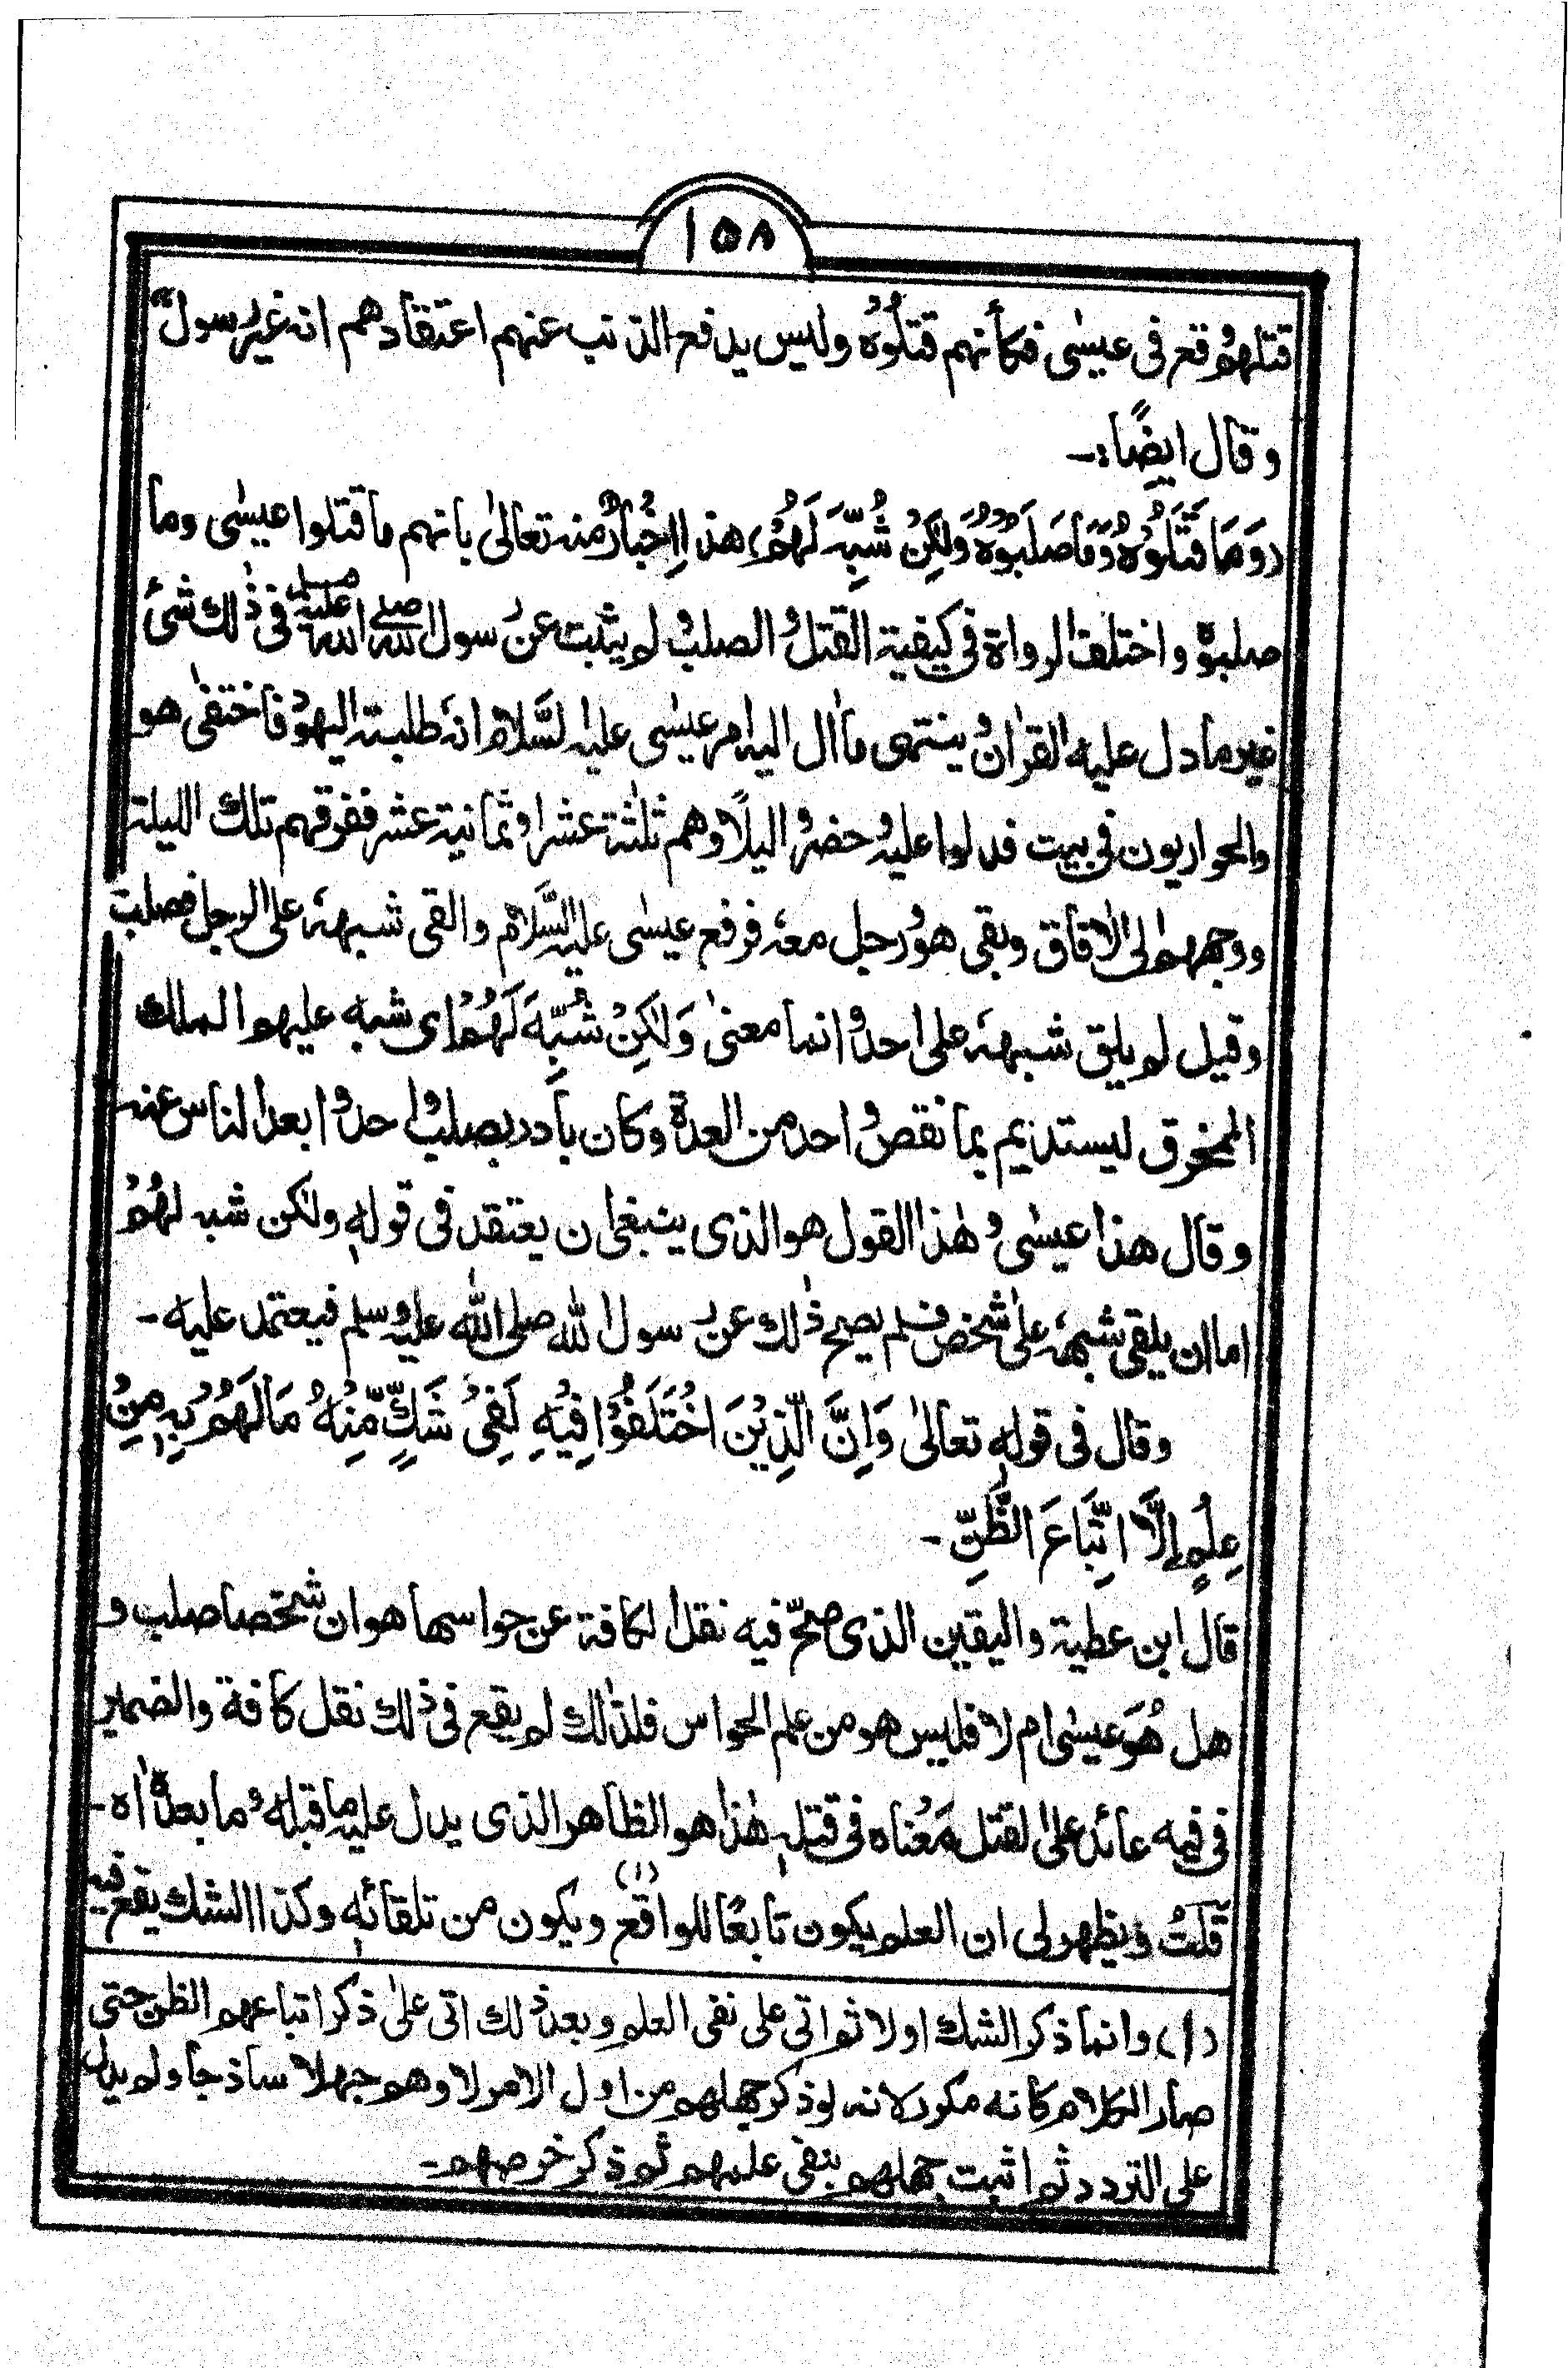 ١٥٨
قتلهم وقع فی عیسٰی فکأنهم قتلُوْه ولیس یدفع الذنب عنهم اعتقادهم انه غیر رسول اھ
وقال ایضًا:۔
(وَمَا قَتَلُوْهُ وَمَا صَلَبُوْهُ وَلٰکِنْ شُبِّهَ لَهُمْ) هذا اِخْبَارٌ منه تعالٰی بانهم ما قتلوا عیسٰی وما
صلبوه واختلف الرواة فی کیفیة القتل والصلب ولم یثبت عن رسول الله صلی الله علیه وسلم فی ذٰلك شئ
غیر ما دل علیه القراٰن ومنتهی ما اٰل الیه امر عیسٰی علیه السَّلام انهٗ طلبته الیهود فاختفٰی هو
والحواریون فی بیت فدلوا علیه وحضروا لیلًا وهم ثلٰثة عشر او ثمانیة عشر ففرقهم تلك اللیلة
ووجههم الی الاٰفاق وبقی هو ورجل معهٗ فرفع عیسٰی علیه السَّلام والقی شبههٗ علی الرجل فصلب
وقیل لم یلق شبههٗ علی احد وانما معنٰی وَلٰکِنْ شُبِّهَ لَهُمْ ای شبه علیهم الملك
الممخرق لیستدیم بما نقص واحد من العدة وکان بادر بصلب واحد وابعد الناس عنه
وقال هذا عیسٰی وهٰذا القول هو الذی ینبغی ان یعتقد فی قولهٖ ولٰکن شبه لهُمْ
اما ان یلقی شبههٗ علٰی شخص فلم یصح ذٰلك عن رسول الله صلی الله علیه وسلم فیعتمد علیه۔
وقال فی قولهٖ تعالٰی وَاِنَّ الَّذِیْنَ اخْتَلَفُوْا فِیْهِ لَفِیْ شَكٍّ مِّنْهُ مَا لَهُمْ بِهٖ مِنْ
عِلْمٍ اِلَّا اتِّبَاعَ الظَّنِّ۔
قال ابن عطیة والیقین الذی صحّ فیه نقل الکافة عن حواسها هو ان شخصا صلب و
هل هُوَ عیسٰی ام لا فلیس هو من علم الحواس فلذٰلك لم یقع فی ذٰلك نقل کافة والضمیر
فی فیه عائد علی القتل مَعْناه فی قتلهٖ هٰذا هو الظاهر الذی یدل علیه ما قبله وما بعده اٰه۔
قلتُ ویظهر لی ان العلم یکون تابعًا للواقع (١) ویکون من تلقائهٖ وکذا الشك یقع فیه
(١) وانما ذکر الشك اولا ثم اتی علی نفی العلم وبعد ذٰلك اتی علٰی ذکر اتباعهم الظن حتی
صار الکلام کانه مکرر لانه لو ذکر جهلهم من اول الامر لاوهم جهلا ساذجا ولم یدل
علی التردد ثم اثبت جهلهم بنفی علمهم ثم ذکر خرصهم۔